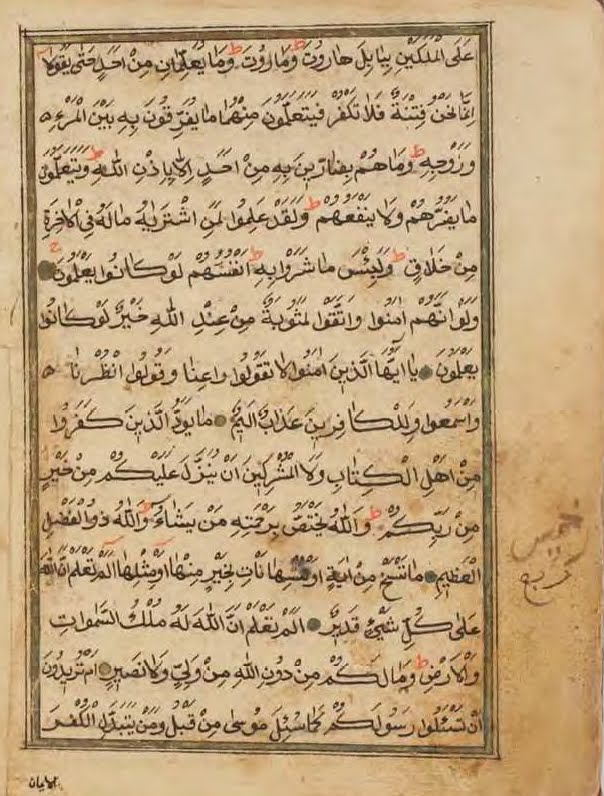 عَلَى الْمَلَكَيْنِ بِبَابِلَ هَارُوتَ ط وَمَارُوتَ ط وَمَا يُعَلِّمَانِ مِنْ اَحَدٍ حَتّٰى يَقُولَا
اِنَّمَا نَحْنُ فِتْنَةٌ فَلَا تَكْفُرْ فَيَتَعَلَّمُونَ مِنْهُمَا مَا يُفَرِّقُونَ بِهِ بَيْنَ الْمَرْءِ
وَزَوْجِهِ ط وَمَا هُمْ بِضَارِّينَ بِهِ مِنْ اَحَدٍ اِلَّا بِاِذْنِ اللّٰهِ ط وَيَتَعَلَّمُونَ
مَا يَضُرُّهُمْ وَلَا يَنْفَعُهُمْ ط وَلَقَدْ عَلِمُوا لَمَنِ اشْتَرٰيهُ مَا لَهُ فِي الْاٰخِرَةِ
مِنْ خَلَاقٍ ط وَلَبِئْسَ مَا شَرَوْا بِهِ ط اَنْفُسَهُمْ لَوْ كَانُوا يَعْلَمُونَ
وَلَوْ اَنَّهُمْ اٰمَنُوا وَاتَّقَوْا لَمَثُوبَةٌ مِنْ عِنْدِ اللّٰهِ خَيْرٌ لَوْ كَانُوا
يَعْلَمُونَ يَا اَيُّهَا الَّذِينَ اٰمَنُوا لَا تَقُولُوا رَاعِنَا وَقُولُوا انْظُرْنَا
وَاسْمَعُوا وَلِلْكَافِرِينَ عَذَابٌ اَلِيمٌ مَا يَوَدُّ الَّذِينَ كَفَرُوا
مِنْ اَهْلِ الْكِتَابِ وَلَا الْمُشْرِكِينَ اَنْ يُنَزَّلَ عَلَيْكُمْ مِنْ خَيْرٍ
مِنْ رَبِّكُمْ ط وَاللّٰهُ يَخْتَصُّ بِرَحْمَتِهِ مَنْ يَشَاءُ ط وَاللّٰهُ ذُو الْفَضْلِ
الْعَظِيمِ مَا نَنْسَخْ مِنْ اٰيَةٍ اَوْ نُنْسِهَا نَأْتِ بِخَيْرٍ مِنْهَا اَوْ مِثْلِهَا اَلَمْ تَعْلَمْ اَنَّ اللّٰهَ
عَلٰى كُلِّ شَيْءٍ قَدِيرٌ اَلَمْ تَعْلَمْ اَنَّ اللّٰهَ لَهُ مُلْكُ السَّمٰوَاتِ
وَالْاَرْضِ ط وَمَا لَكُمْ مِنْ دُونِ اللّٰهِ مِنْ وَلِيٍّ وَلَا نَصِيرٍ اَمْ تُرِيدُونَ
اَنْ تَسْئَلُوا رَسُولَكُمْ كَمَا سُئِلَ مُوسٰى مِنْ قَبْلُ وَمَنْ يَتَبَدَّلِ الْكُفْرَ
بالايمان